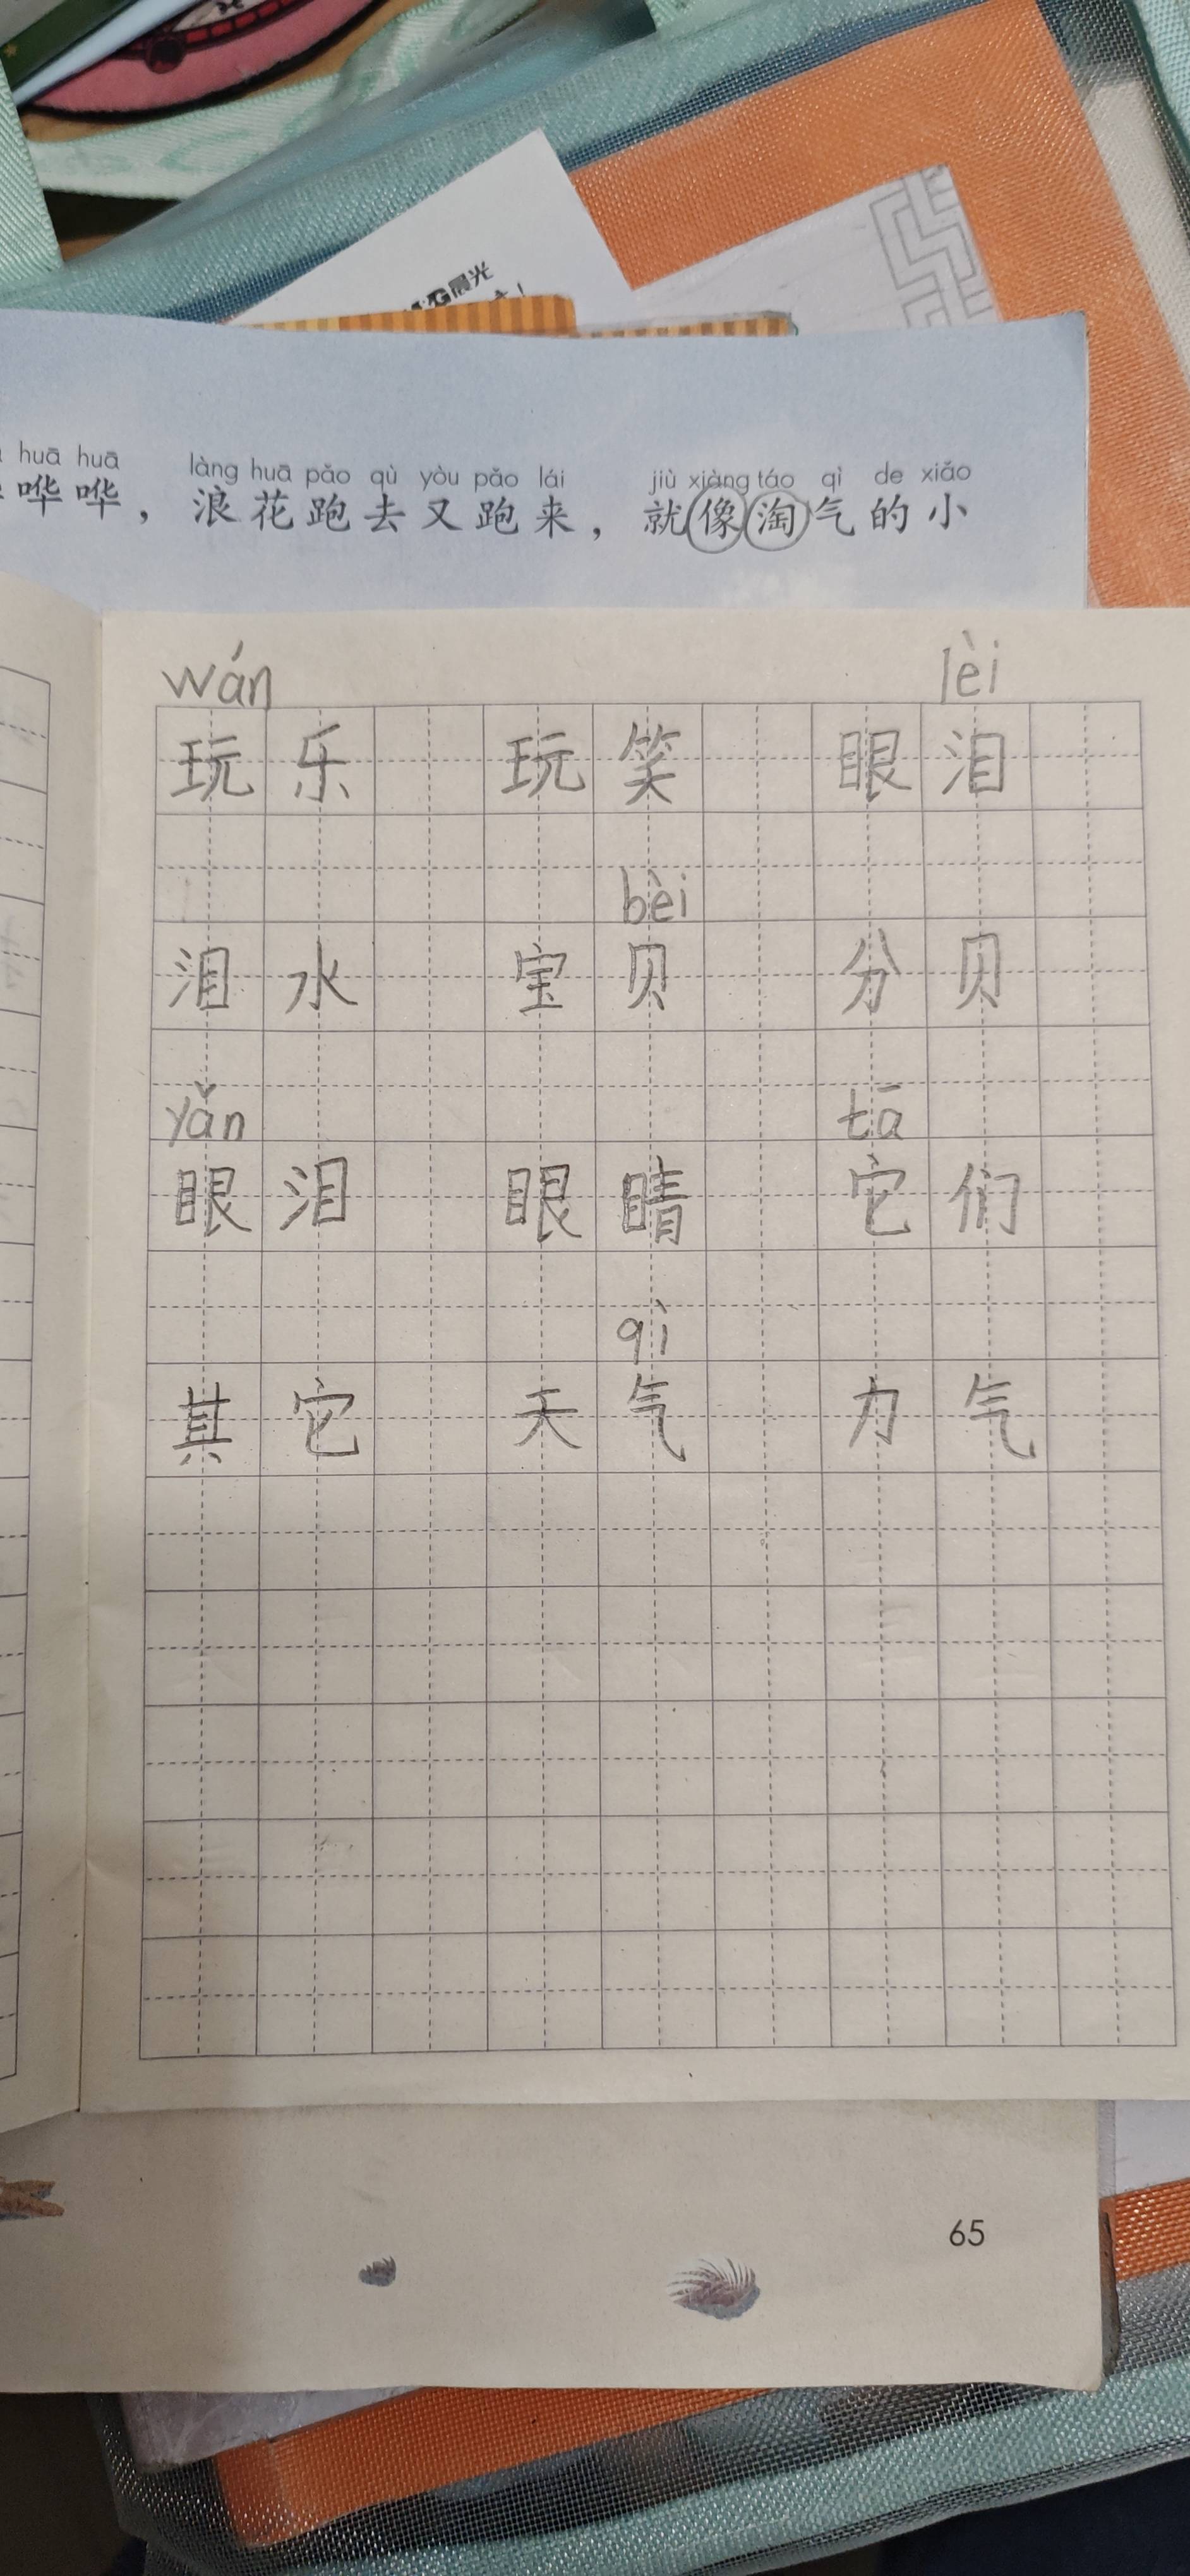 M&G晨光
huā huā làng huā pǎo qù yòu pǎo lái jiù xiàng táo qì de xiǎo
哗哗，浪花跑去又跑来，就像淘气的小
wán lèi
玩乐 玩笑 眼泪
bèi
泪水 宝贝 分贝
yǎn tā
眼泪 眼睛 它们
qì
其它 天气 力气
65